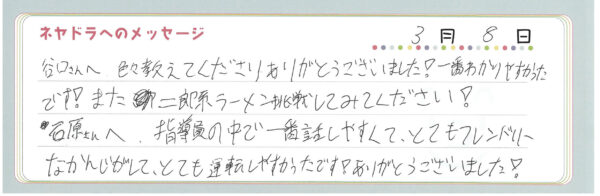 ネヤドラへのメッセージ 3月8日
谷口さんへ 色々教えてくださりありがとうございました!一番わかりやすかった
です!また二郎系ラーメン挑戦してみてください!
石原さんへ、指導員の中で一番話しやすくて、とてもフレンドリー
なかんじがして、とても運転しやすかったです!ありがとうございました!